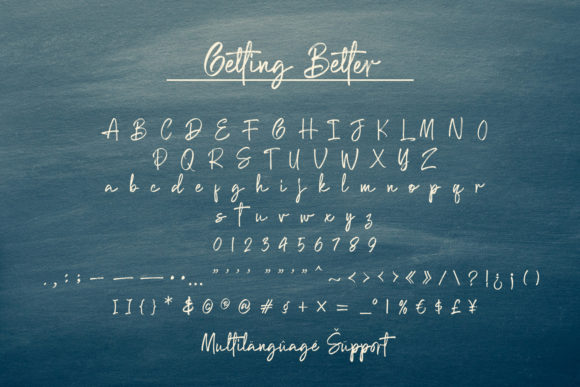 Getting Better
A B C D E F G H I J K L M N O
P Q R S T U V W X Y Z
a b c d e f g h i j k l m n o p q r
s t u v w x y z
0 1 2 3 4 5 6 7 8 9
. , : ; – — — · • … " ' ' ' " " ' " ^ ~ < > < > « » / \ ? | ¿ ¡ ( )
[ ] { } * & © © ® @ # § + × = _ ° | % € $ £ ¥
Multilängüage Šüpport